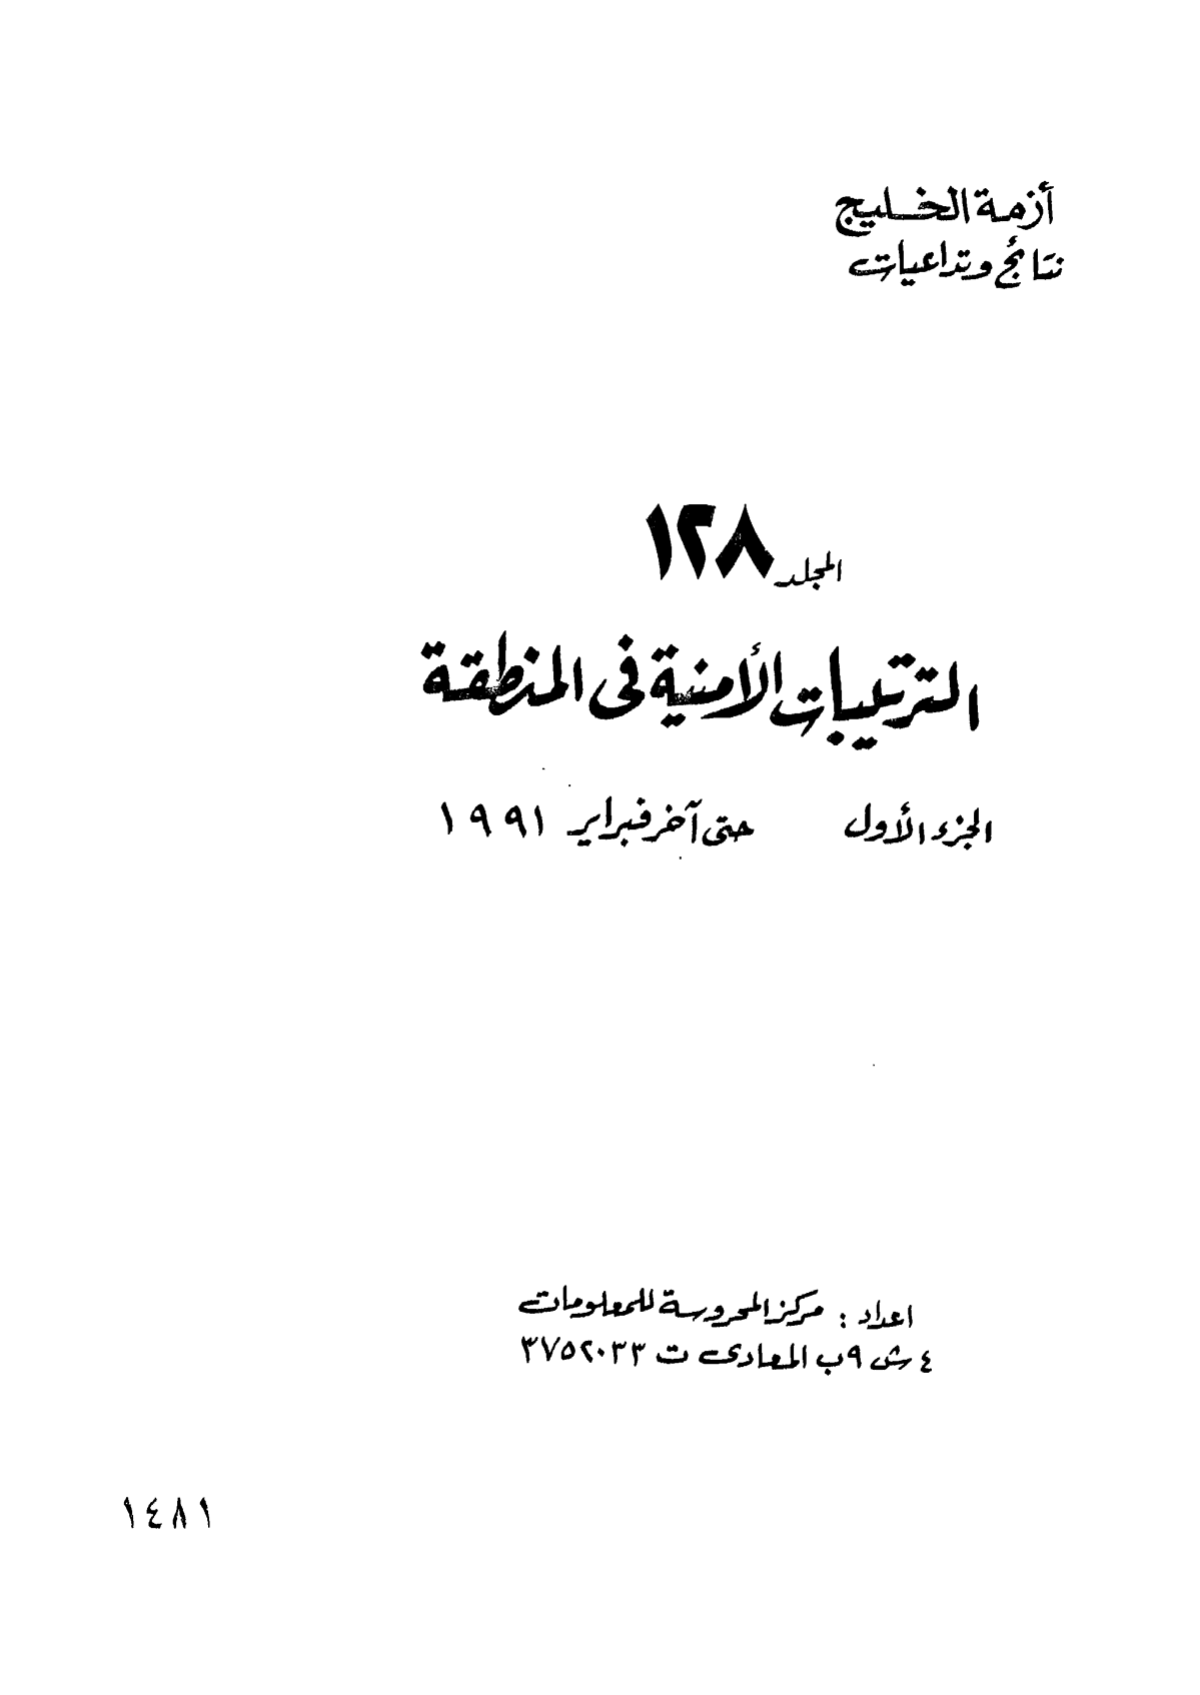 أزمة الخليج
نتائج وتداعيات
المجلد ١٢٨
الترتيبات الأمنية فى المنطقة
الجزء الأول حتى آخر فبراير ١٩٩١
اعداد : مركز المحروسة للمعلومات
٤ ش ٩ب المعادى ت ٣٧٥٢٠٣٣
١٤٨١